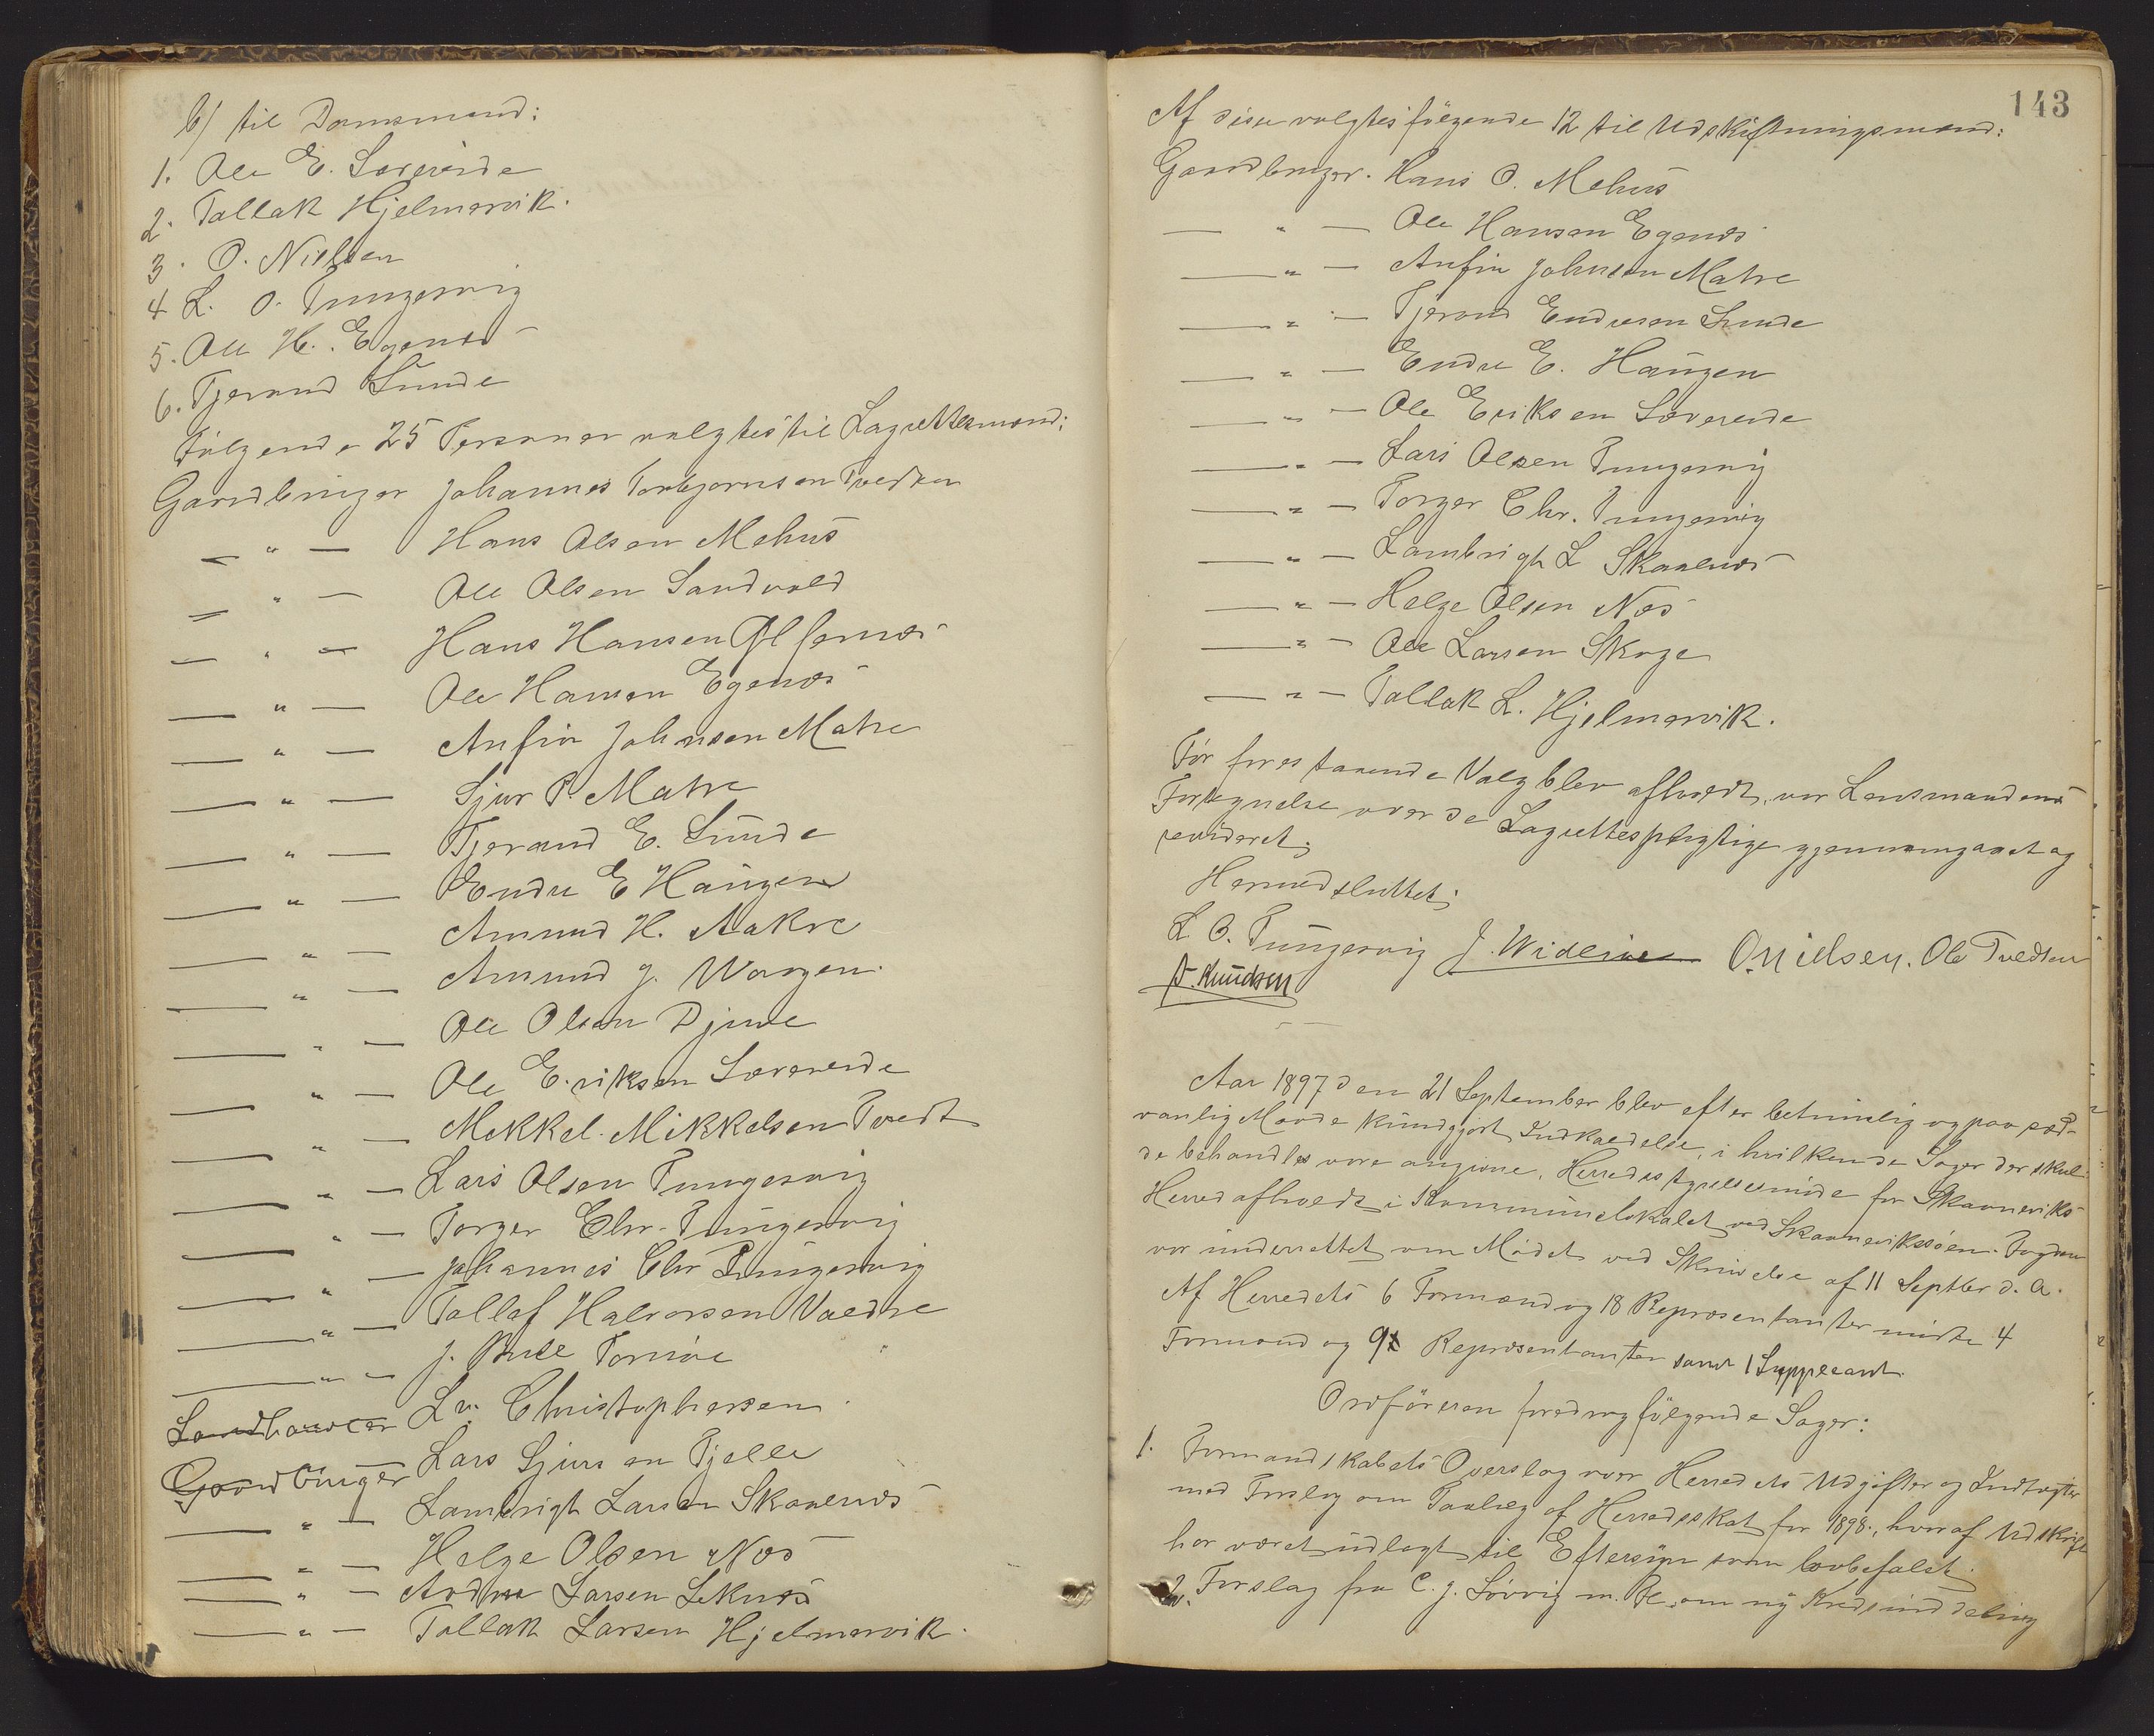 b/ til Domsmænd:
1. Ole E. Sævereide
2. Tallak Hjelmervik.
3. O. Nielsen
4 L. O. Tungesvig
5. Ole H. Egenæs
6. Tjerand Sunde
Følgende 25 Personer valgtes til Lagrettesmænd:
Gaardbruger Johannes Torbjørnsen Tvedten
— " — Hans Olsen Mehus
— " — Ole Olsen Sandvold
— " — Hans Hansen Alsernæs
— " — Ole Hansen Egenæs
— " — Anfin Johnsen Matre
— " — Sjur P. Matre
— " — Tjerand E. Sunde
— " — Endre E Haugen
— " — Amund H. Aakre
— " — Amund J. Wangen.
— " — Ole Olsen Djuve
— " — Ole Eriksen Sævereide
— " — Mikkel Mikkelsen Tvedt
— " — Lars Olsen Tungesvig
— " — Torger Chr. Tungesvig
— " — Johannes Chr Tungesvig
— " — Tollef Halvorsen Valdre
— " — J. Bull Tornøe
Landhandler L. Christophersen
Gaardbruger Lars Sjursen Tjelle
— " — Lambrigt Larsen Skaalnæs
— " — Helge Olsen Næs
— " — Andreas Larsen Leknæs
— " — Tallak Larsen Hjelmervik.
143
Af disse valgtes følgende 12 til Udskiftningsmænd:
Gaardbruger. Hans O. Mehus
— " — Ole Hansen Egenæs
— " — Anfin Johnsen Matre
— " — Tjerand Endresen Sunde
— " — Endre E. Haugen
— " — Ole Eriksen Sævereide
— " — Lars Olsen Tungesvig
— " — Torger Chr. Tungesvig
— " — Lambrigt L Skaalnæs
— " — Helge Olsen Næs
— " — Ole Larsen Skoge
— " — Tallak L. Hjelmervik.
Før forestaaende Valg blev afholdt, var Lensmandens
Fortegnelse over de Lagrettespligtige gjennemgaaet og
revideret.
Hermed sluttet.
L O. Tungesvig J. Widsteen O. Nielsen. Ole Tvedten
A. Knudsen
Aar 1897 den 21 September blev efter betimelig og paa sæd-
vanlig Maade kundgjort Indkaldelse, i hvilken de Sager der skul-
de behandles vare angivne, Herredsstyrelsesmøde for Skaaneviks
Herred afholdt i Kommunelokalet ved Skaanevikssøen. Fogden
var underrettet om Mødet ved Skrivelse af 11 Septbr d. A.
Af Herredets 6 Formænd og 18 Repræsentanter mødte 4
Formænd og 9 Repræsentanter samt 1 Suppleant.
Ordføreren foredrog følgende Sager:
1. Formandskabets Overslag over Herredets Udgifter og Indtægter
med Forslag om Paalæg af Herredsskat for 1898, hvoraf Udskrift
har været udlagt til Eftersyn som lovbefalet.
2. Forslag fra C. J. Løvvig m. fl. om ny Kredsinddeling